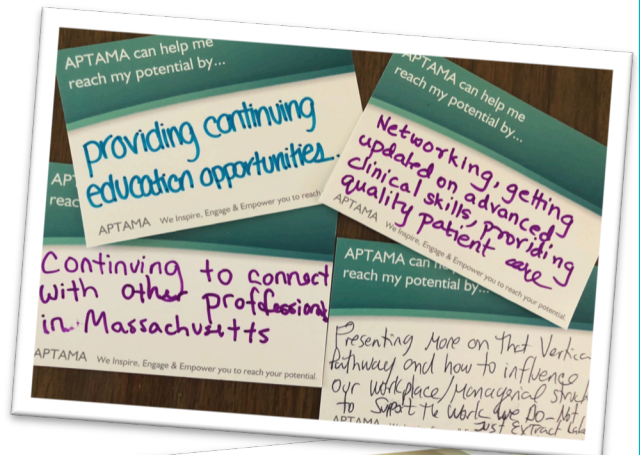 APTAMA can help me
reach my potential by...
providing continuing
education opportunities.
APTAMA We Inspire, Engage & Empower you to reach
APTAMA can help me
reach my potential by...
Networking, getting
updated on advanced
clinical skills, providing
quality patient care
APTAMA We Inspire, Engage & Empower you to reach your potential.
AP
reac
Continuing to connect
with other proffessionals
in Massachusetts
APTAMA We Inspire, Engage & Empower you to reach your potential.
APTAMA can h
reach my potential by...
Presenting More on that Vertica
Pathway and how to influence
our workplace/Managerial struc
to Support the Work we Do-Not
APTAMA Just Extract